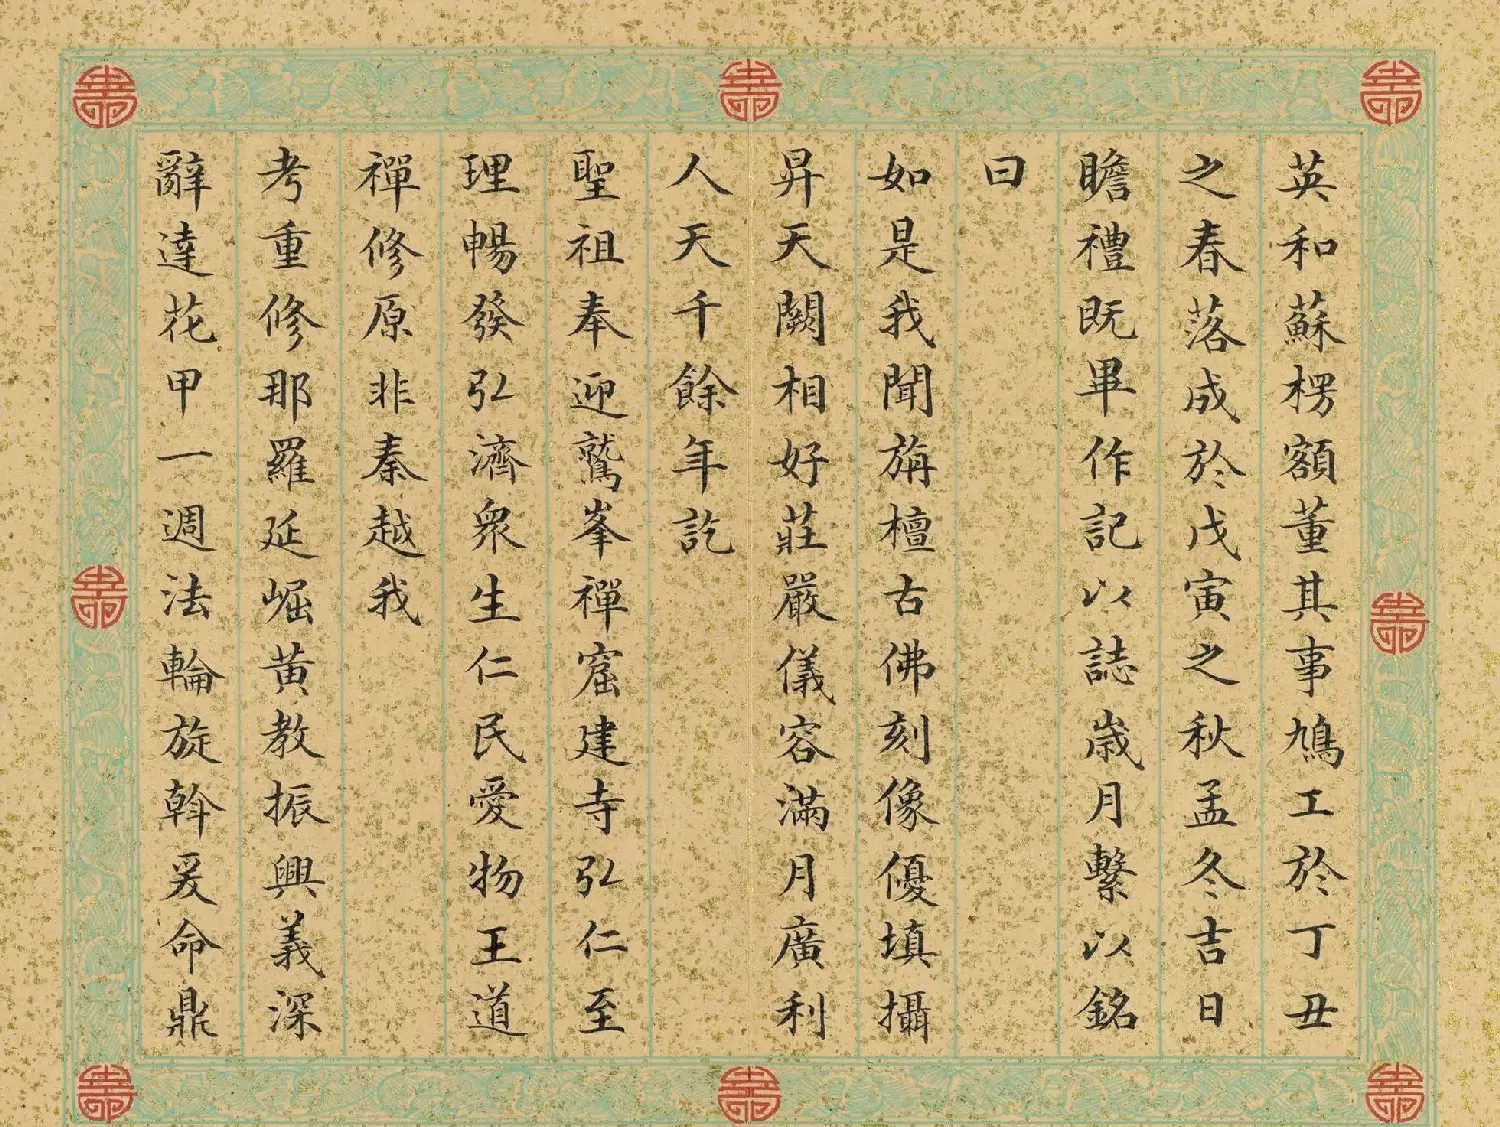 英和蘇楞額董其事鳩工於丁丑
之春落成於戊寅之秋孟冬吉日
瞻禮既畢作記以誌歳月繫以銘
曰
如是我聞旃檀古佛刻像優填攝
昇天闕相好莊嚴儀容滿月廣利
人天千餘年訖
聖祖奉迎鷲峯禪窟建寺弘仁至
理暢發弘濟衆生仁民愛物王道
禪修原非秦越我
考重修那羅延崛黃教振興義深
辭達花甲一週法輪旋斡爰命鼎